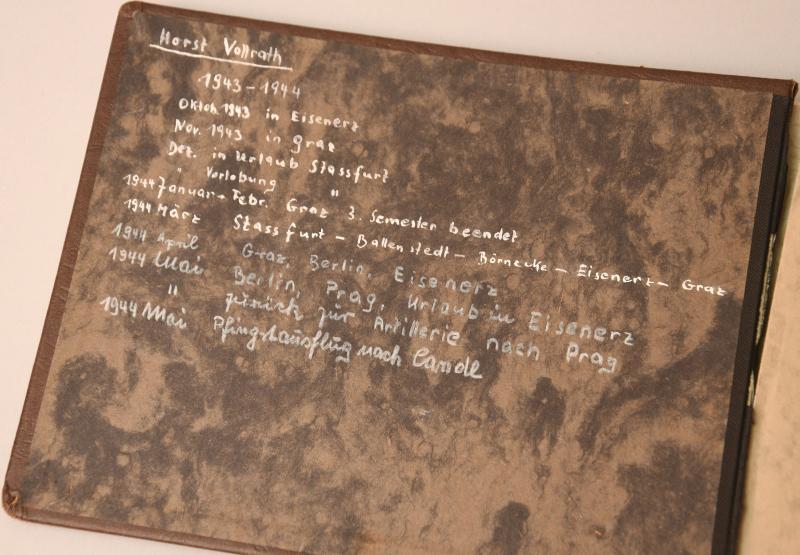 Horst Vollrath
1943 - 1944
Oktob. 1943 in Eisenerz
Nov. 1943 in Graz
Dez. in Urlaub Stassfurt
" Verlobung "
1944 Januar - Febr. Graz 3. Semester beendet
1944 März Stassfurt - Ballenstedt - Börnecke - Eisenerz - Graz
1944 April Graz, Berlin, Eisenerz
1944 Mai Berlin, Prag, Urlaub in Eisenerz
" zurück zur Artillerie nach Prag
1944 Mai Pfingstausflug nach